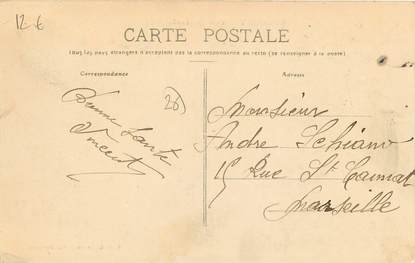 12 €
CARTE POSTALE
Tous les pays étrangers n'acceptent pas la correspondance au recto (se renseigner à la poste)
Correspondance
Adresse
Bonne Santé
Vincent
20
Monsieur
André Schiano
15 Rue St Cannat
Marseille